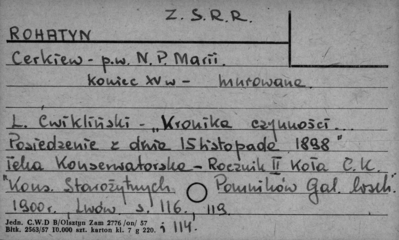 Z. S. R. R.
ROHATYN
Cerkiew - p.w. N. P. Marii.
koniec XV w - murowana.
L. Ćwikliński - „Kronika czynności...
Posiedzenie z dnia 15 listopada 1898"
Teka Konserwatorska - Rocznik II Koła C. K.
"Kons. Starożytnych Pomników Gal. wsch.
1900r., Lwów s. 116., 119.
i 114.
Jedn. C.W.D B/Olsztyn Zam 2776 /on/ 57
Bltk. 2563/57 10.000 szt. karton kl. 7 g 220.